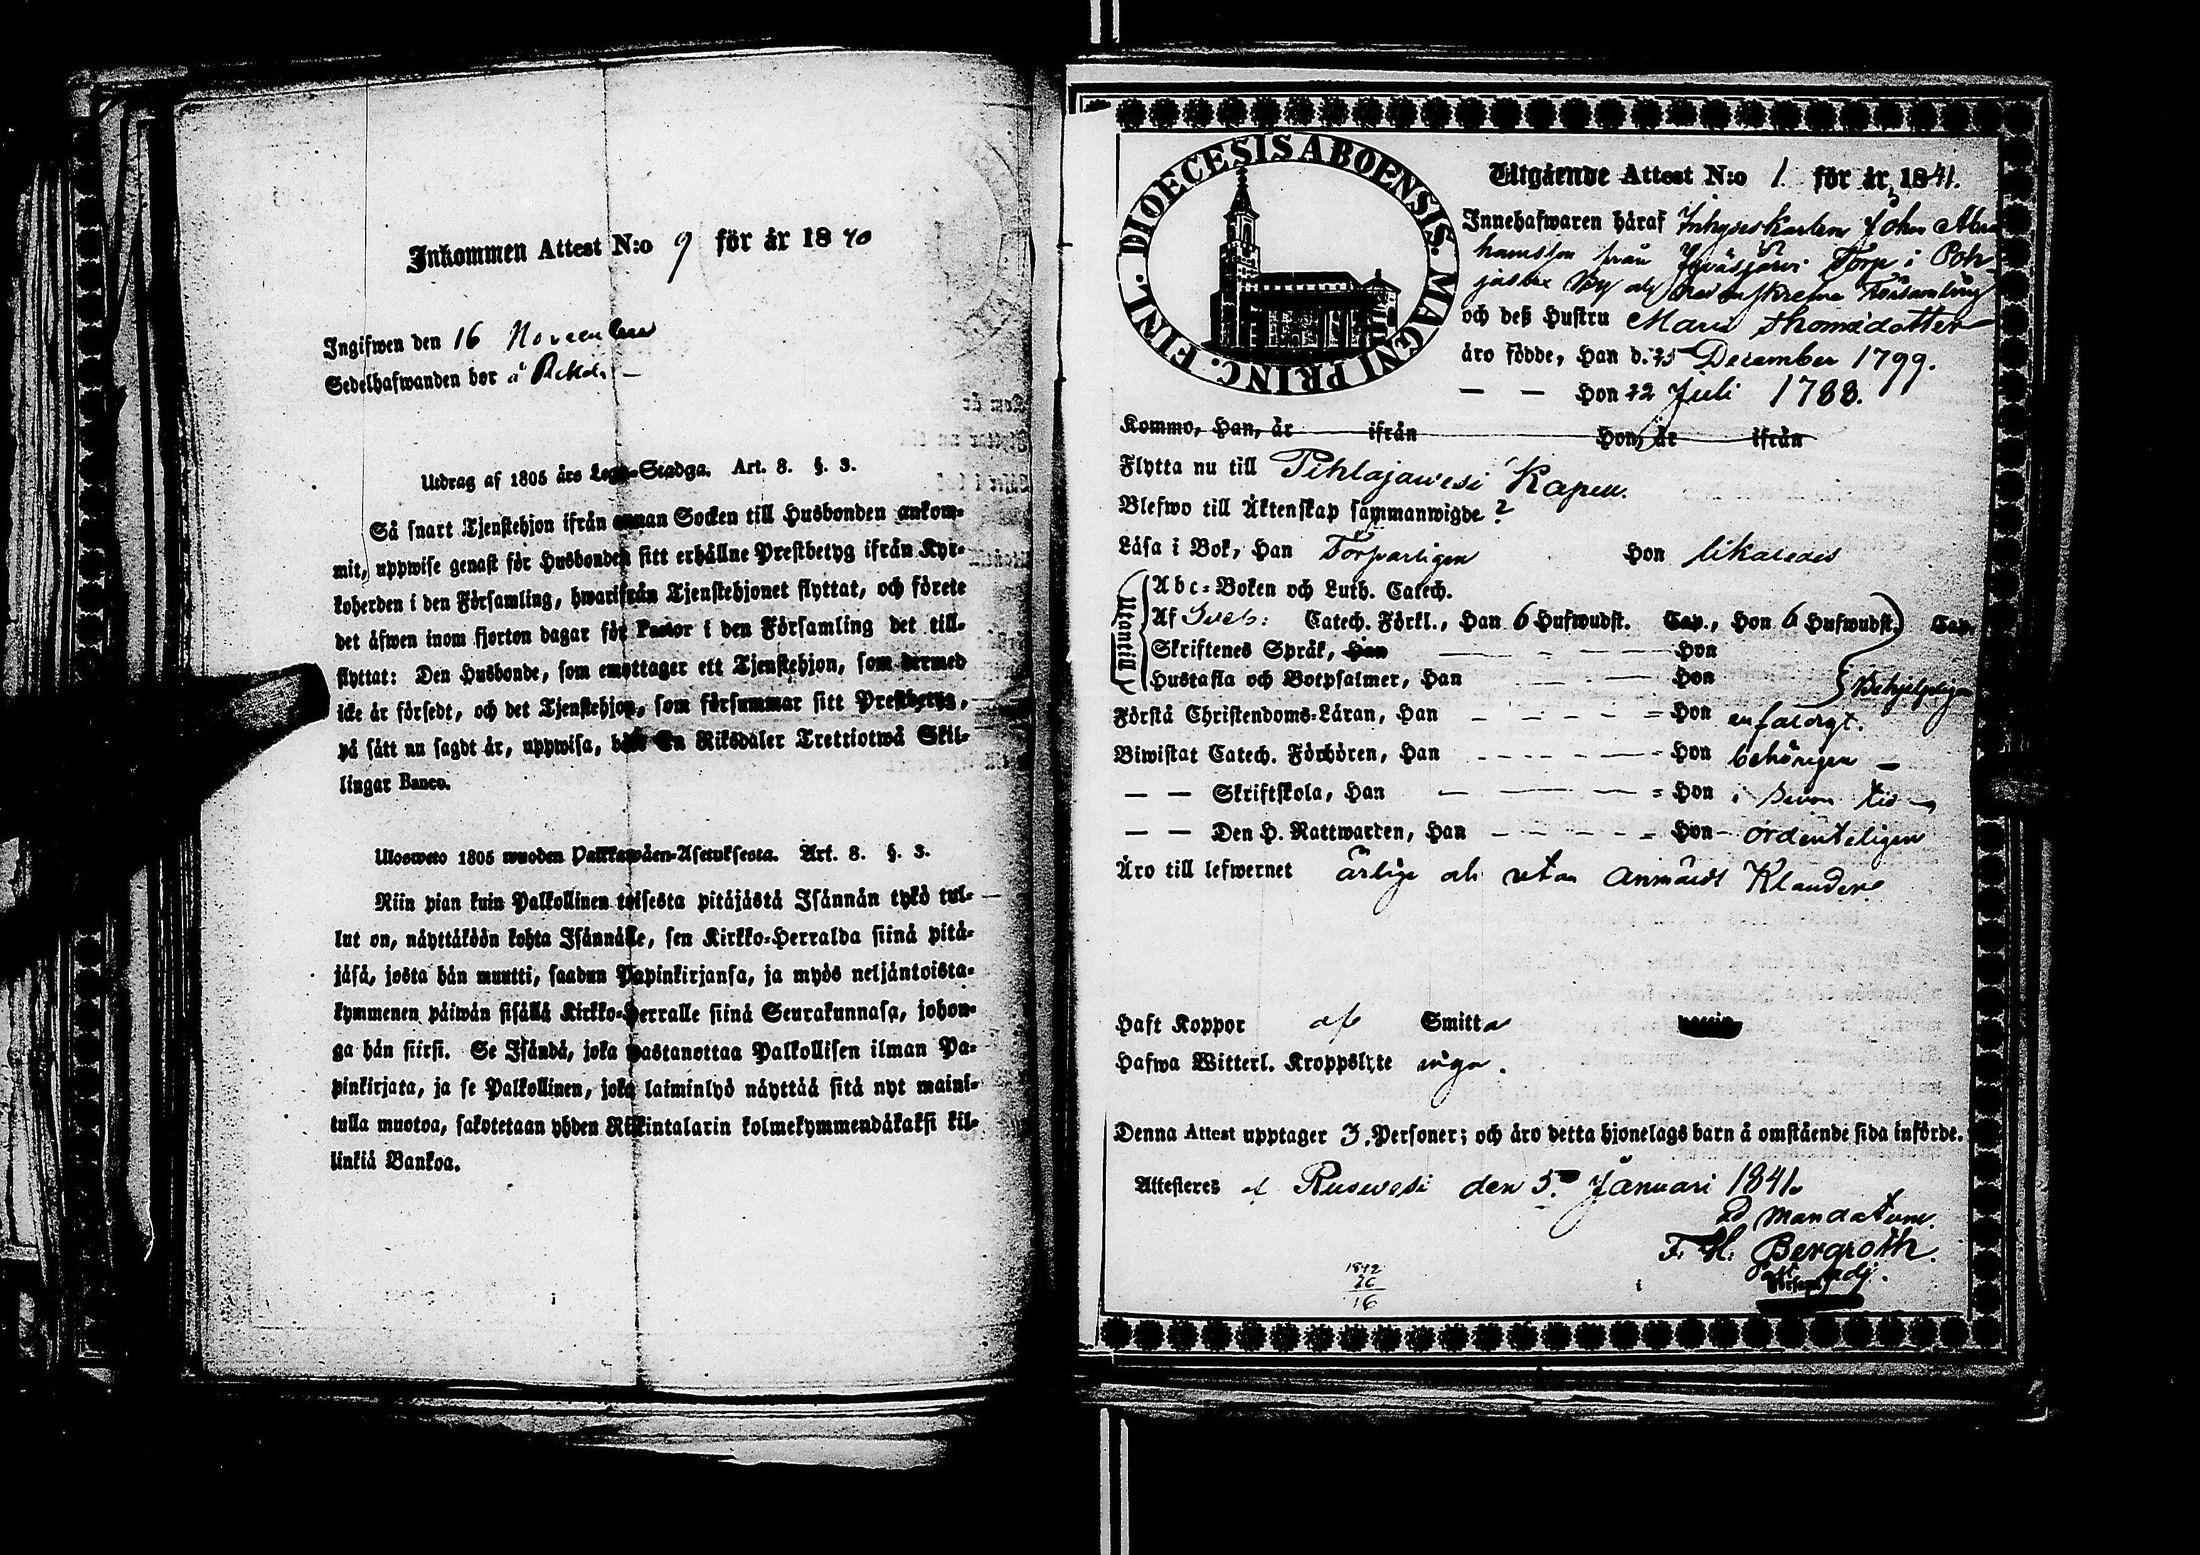 Inkommen Attest N:o 9 för år 1840
Ingifwen den 16 November
Sedelhafwanden bor å
Utdrag af 1805 års Lego-Stadga. Art. 8. §. 3.
Så snart Tjenstehjon ifrån annan Socken till Husbonden ankom-
mit, uppwise genast för Husbonden sitt erhållne Prestbetyg ifrån Kyr-
koherden i den Församling, hwarifrån Tjenstehjonet flyttat, och förete
det äfwen inom fjorton dagar för Pastor i den Församling det till-
flyttat: Den Husbonde, som emottager ett Tjenstehjon, som dermed
icke är försedt, och det Tjenstehjon, som försummar sitt Prestbetyg,
på sätt nu sagdt är, uppwisa, böte En Riksdaler Trettiotwå Skil-
lingar Banco.
Ulosweto 1805 wuoden Palkkawäen-Asetuksesta. Art. 8. §. 3.
Niin pian kuin Palkollinen toisesta pitäjästä Isännän tykö tul-
lut on, näyttäköön kohta Isännälle, sen Kirkko-Herralda siinä pitä-
jäsä, josta hän muutti, saadun Papinkirjansa, ja myös neljäntoista-
kymmenen päiwän sisällä Kirkko-Herralle siinä Seurakunnasa, johon-
ga hän siirsi. Se Isändä, joka wastanottaa Palkollisen ilman Pa-
pinkirjata, ja se Palkollinen, joka laiminlyö näyttää sitä nyt maini-
tulla muotoa, sakotetaan yhden Riikintalarin kolmekymmendäkaksi kil-
linkiä Bankoa.
DIOECESIS ABOENSIS. MAGNI PRINC. FINL.
Utgående Attest N:o 1. för år 1841.
Innehafwaren häraf Inhyseskarlen Johan Abra
hamsson från Jyväsjärvi Torp i Poh-
by och Församling
och deß Hustru Maria Thomädotter
äro födde, Han d. 25 December 1799.
— — Hon 22 Juli 1788.
Kommo, Han, år ifrån Hon, år ifrån
Flytta nu till Pihlajawesi Kapell.
Blefwo till Äktenskap sammanwigde ?
Läsa i Bok, Han Försvarligen Hon likaledes
Utantill
Abc-Boken och Luth. Catech.
Af Sveb: Catech. Förkl., Han 6 Hufwudst. Cap., Hon 6 Hufwudst. Cap.
Skriftenes Språk, Han — — — Hon
Hustafla och Botpsalmer, Han — — — Hon Behjelpligen
Förstå Christendoms-Läran, Han - - - - = Hon enfaldigt.
Biwistat Catech. Förhören, Han - - - - - Hon behörigen —
— — Skriftskola, Han — — — = Hon i sinom tid —
— — Den H. Nattwarden, Han - - - - Hon - ordenteligen
Äro till lefwernet ärlige och utan anmärkt Klander.
Haft Koppor af Smitta
Hafwa Witterl. Kroppslyte inga.
Denna Attest upptager 3. Personer; och äro detta hjonelags barn å omstående sida införde.
Attesteres af Ruowesi den 5. Januari 1841.
ad mandatum.
F. H. Bergroth.
Past. adj.
1842
26
16